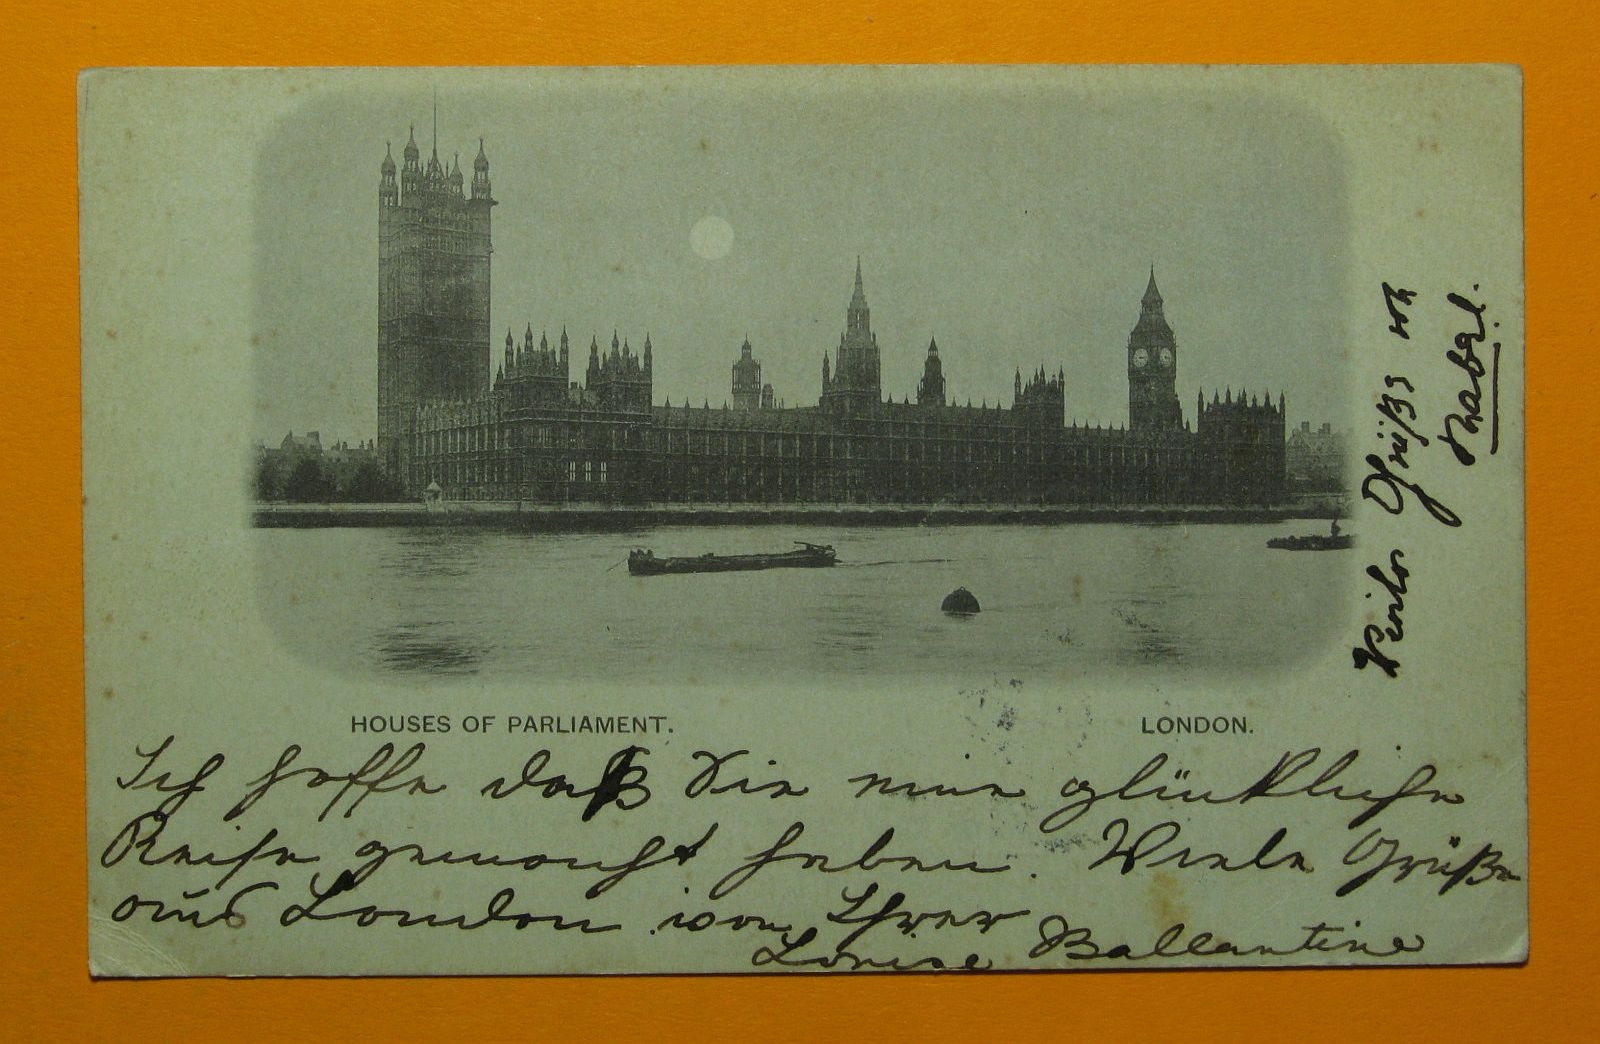 HOUSES OF PARLIAMENT.
LONDON.
Ich hoffe daß Sie eine glückliche
Reise gemacht haben. Viele Grüße
aus London von Ihrer
Louise Ballantine
Viele Grüße von
Mabel.